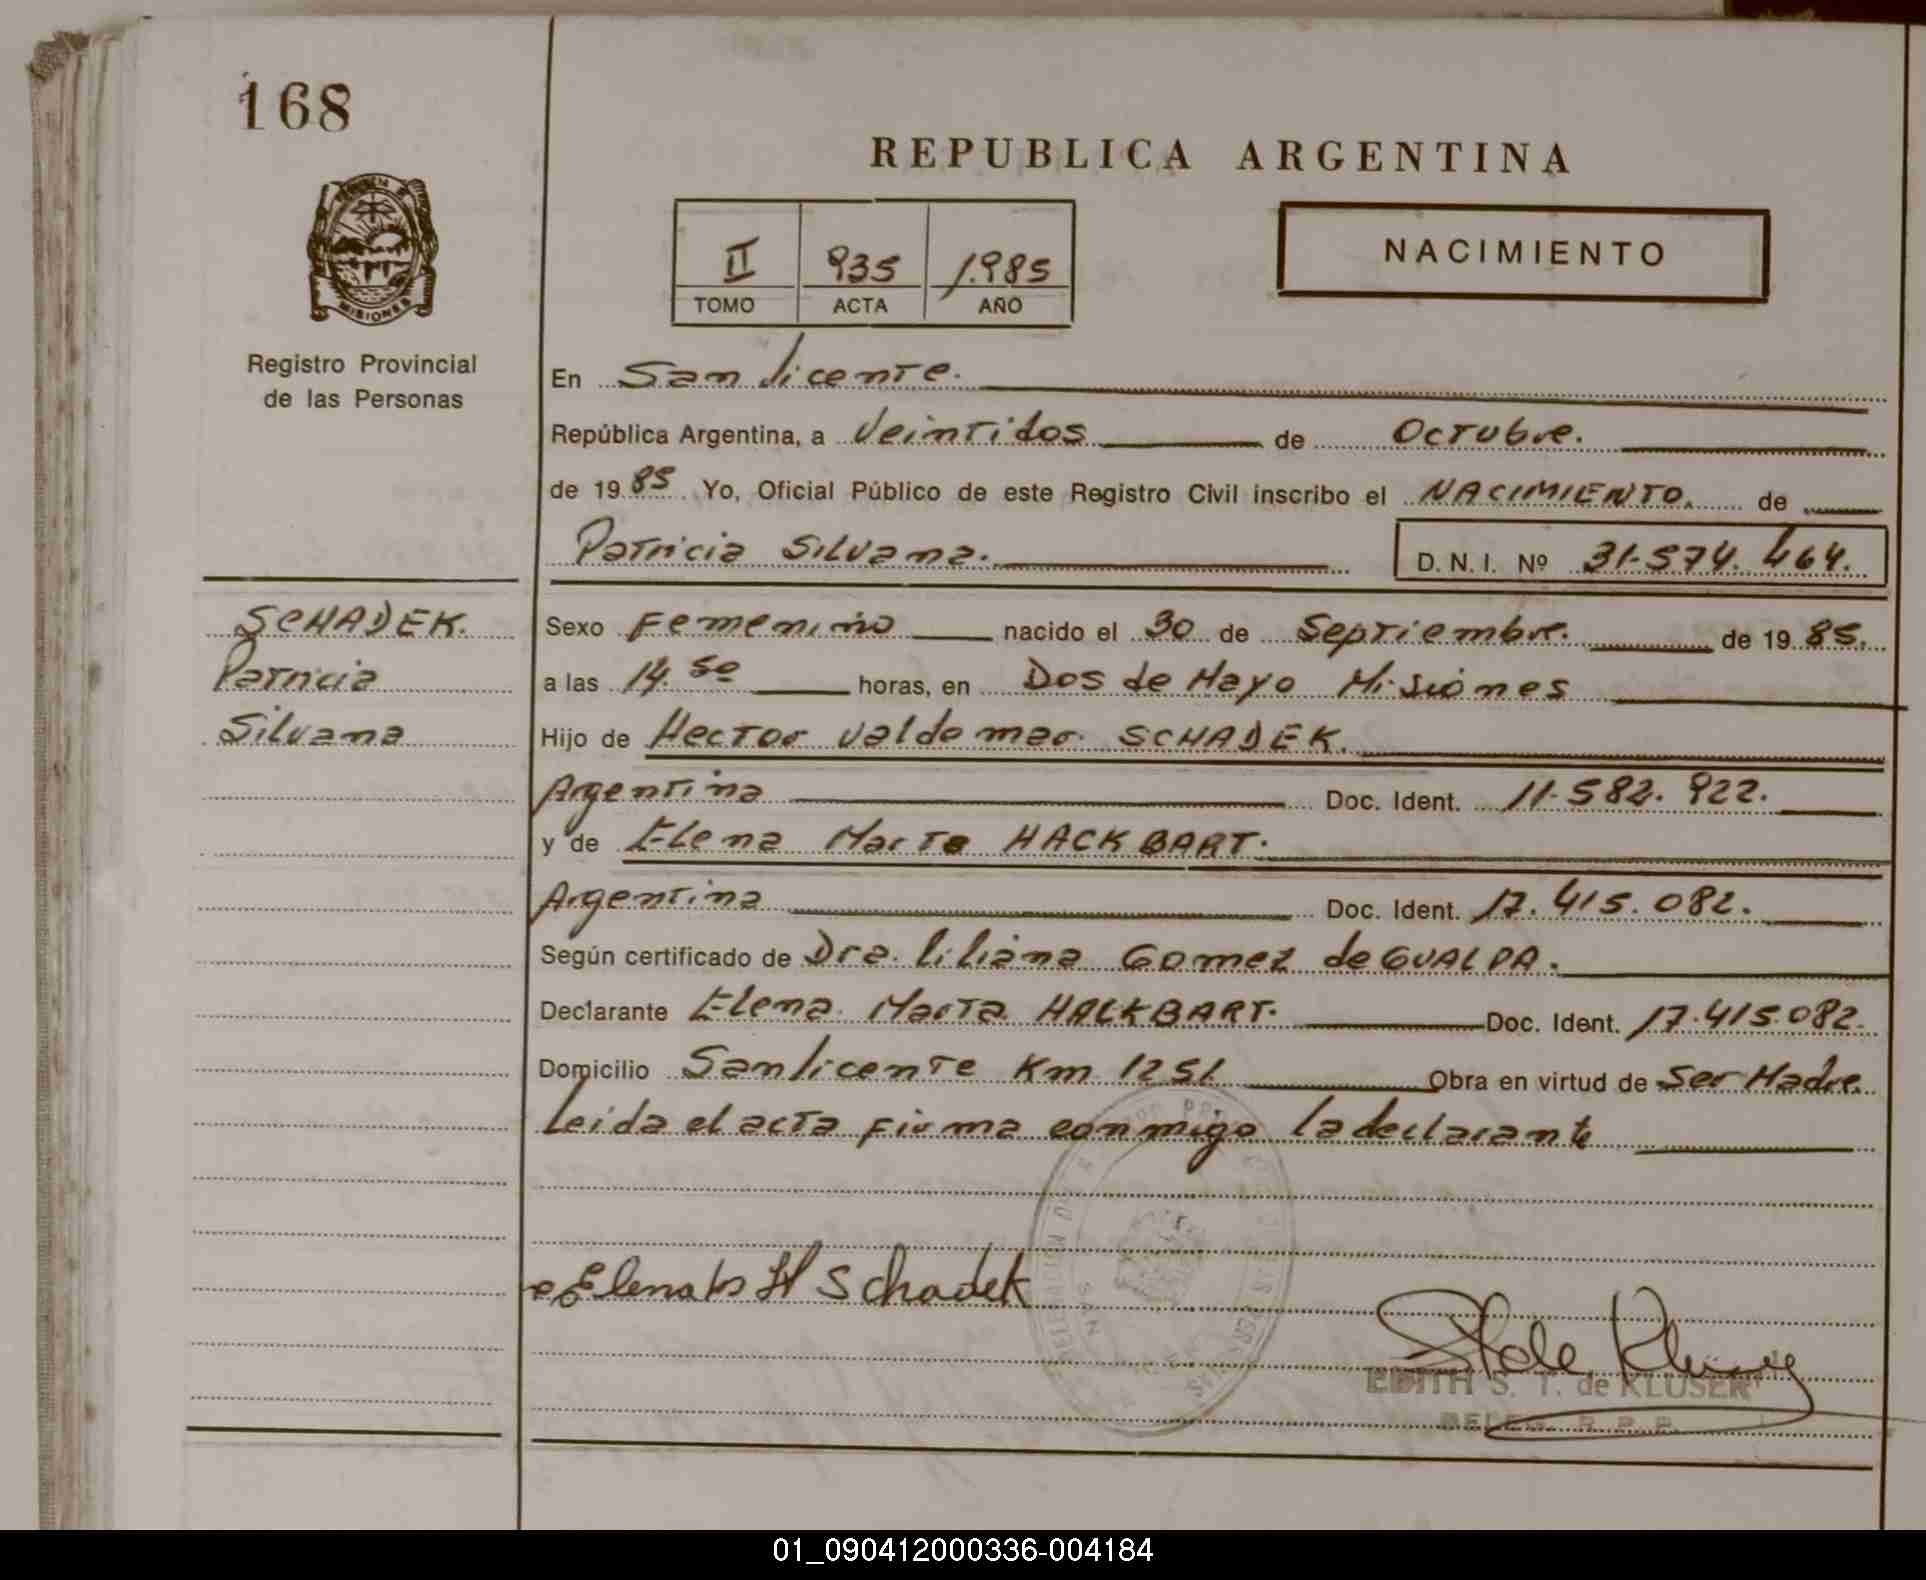 168
REPUBLICA ARGENTINA
MISIONES
Registro Provincial
de las Personas
II 935 1.985
TOMO ACTA AÑO
NACIMIENTO
En San Vicente.
República Argentina, a Veintidos de Octubre.
de 1985 Yo, Oficial Público de este Registro Civil inscribo el NACIMIENTO. de
Patricia Silvana. D.N.I. Nº 31.574.464.
SCHADEK.
Patricia
Silvana
Sexo Femenino nacido el 30 de Septiembre. de 1985.
a las 14.50 horas, en Dos de Mayo Misiones
Hijo de Hector Valdemar SCHADEK.
Argentina Doc. Ident. 11.582.922.
y de Elena Marta HACKBART.
Argentina Doc. Ident. 17.415.082.
Según certificado de Dra. Liliana Gomez de GUALDA.
Declarante Elena Marta HACKBART. Doc. Ident. 17.415.082.
Domicilio San Vicente Km 1251 Obra en virtud de Ser Madre.
Leida el acta firma conmigo la declarante
Elena H Schadek
EDITH S. T. de KLUSER
DELEG. R.P.P.
01_090412000336-004184